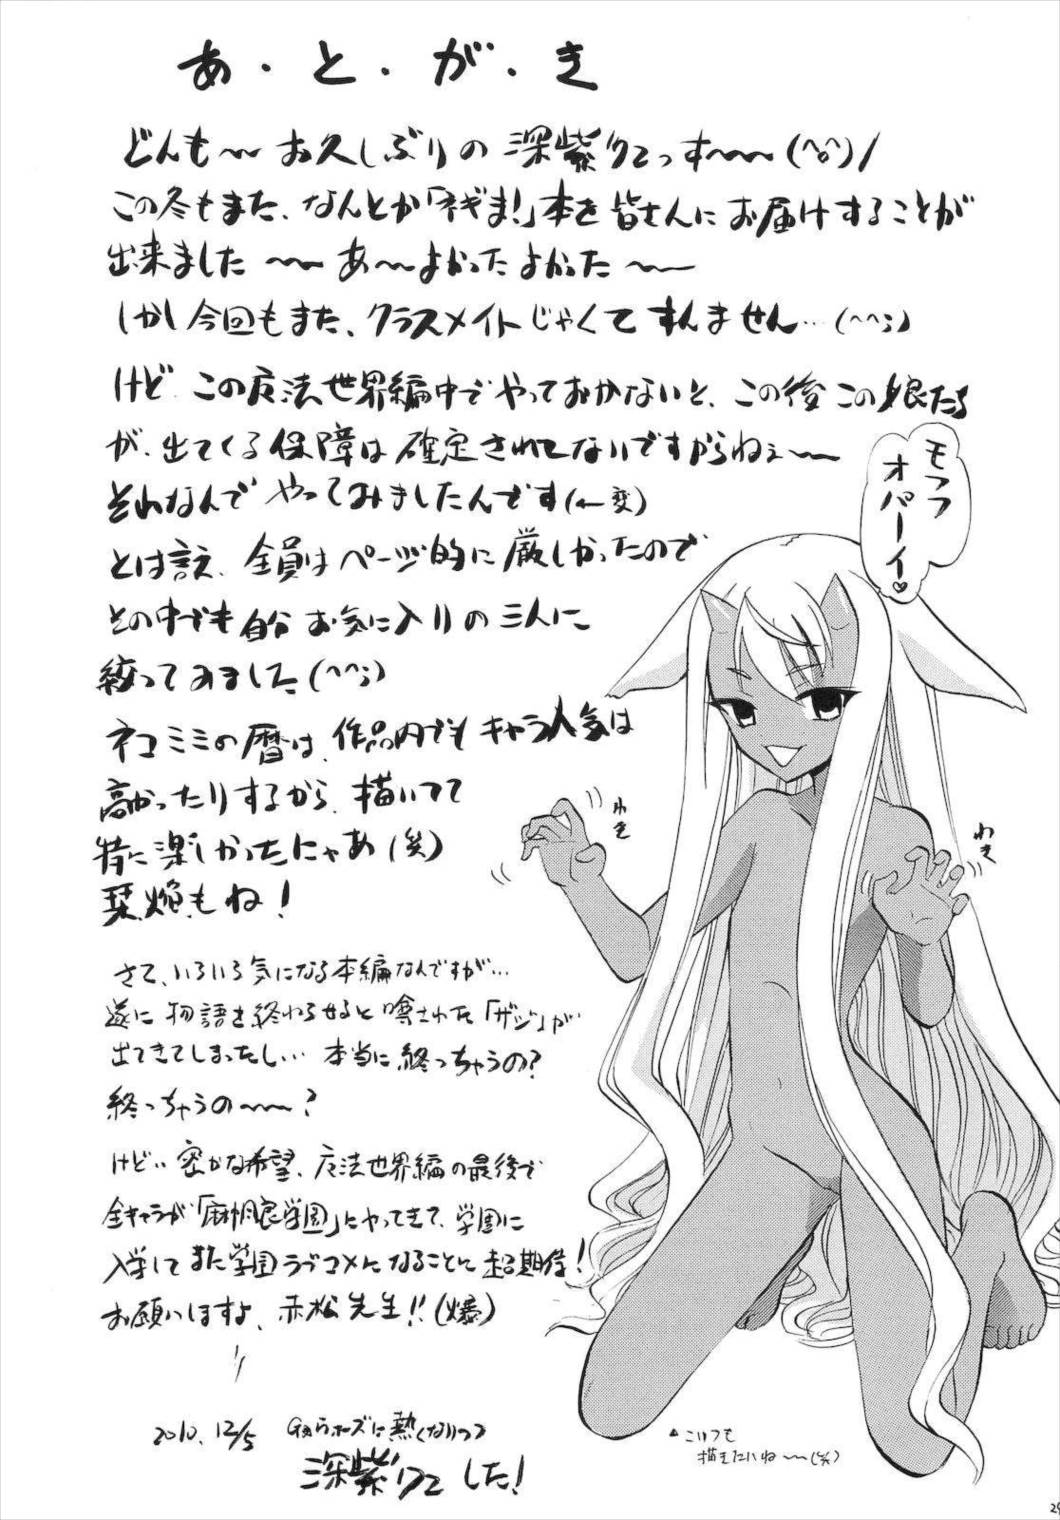 あ・と・が・き
どんも〜お久しぶりの深紫クエっす〜〜(^o^)/
この冬もまた、なんとか「ネギま!」本を皆さんにお届けすることが
出来ました〜〜あ〜よかったよかった〜〜
しかし今回もまた、クラスメイトじゃくてすんません…(^^;)
けど、この魔法世界編中でやっておかないと、この後この娘たち
が、出てくる保障は確定されてないですからねぇ〜〜
それなんでやってみましたんです(←変)
とは言え、全員はページ的に厳しかったので
その中でも自分お気に入りの三人に
絞ってみました(^^;)
ネコミミの暦は、作品内でもキャラ人気は
高かったりするから、描いてて
特に楽しかったにゃあ(笑)
栞、焔もね!
さて、いろいろ気になる本編なんですが…
遂に物語を終わらせると噂された「ザジ」が
出てきてしまったしぃ… 本当に終っちゃうの?
終っちゃうの〜〜?
けどぃぃ密かな希望、魔法世界編の最後で
全キャラが「麻帆良学園」にやってきて、学園に
入学してまた学園ラブコメになることに超期待!
お願いしますよ、赤松先生!!(爆)
2010.12/5
熱くなりつつ
深紫クエでした!
モフフ
オパーイ♡
わき
わき
▲こいつも
描きたいね〜〜(笑)